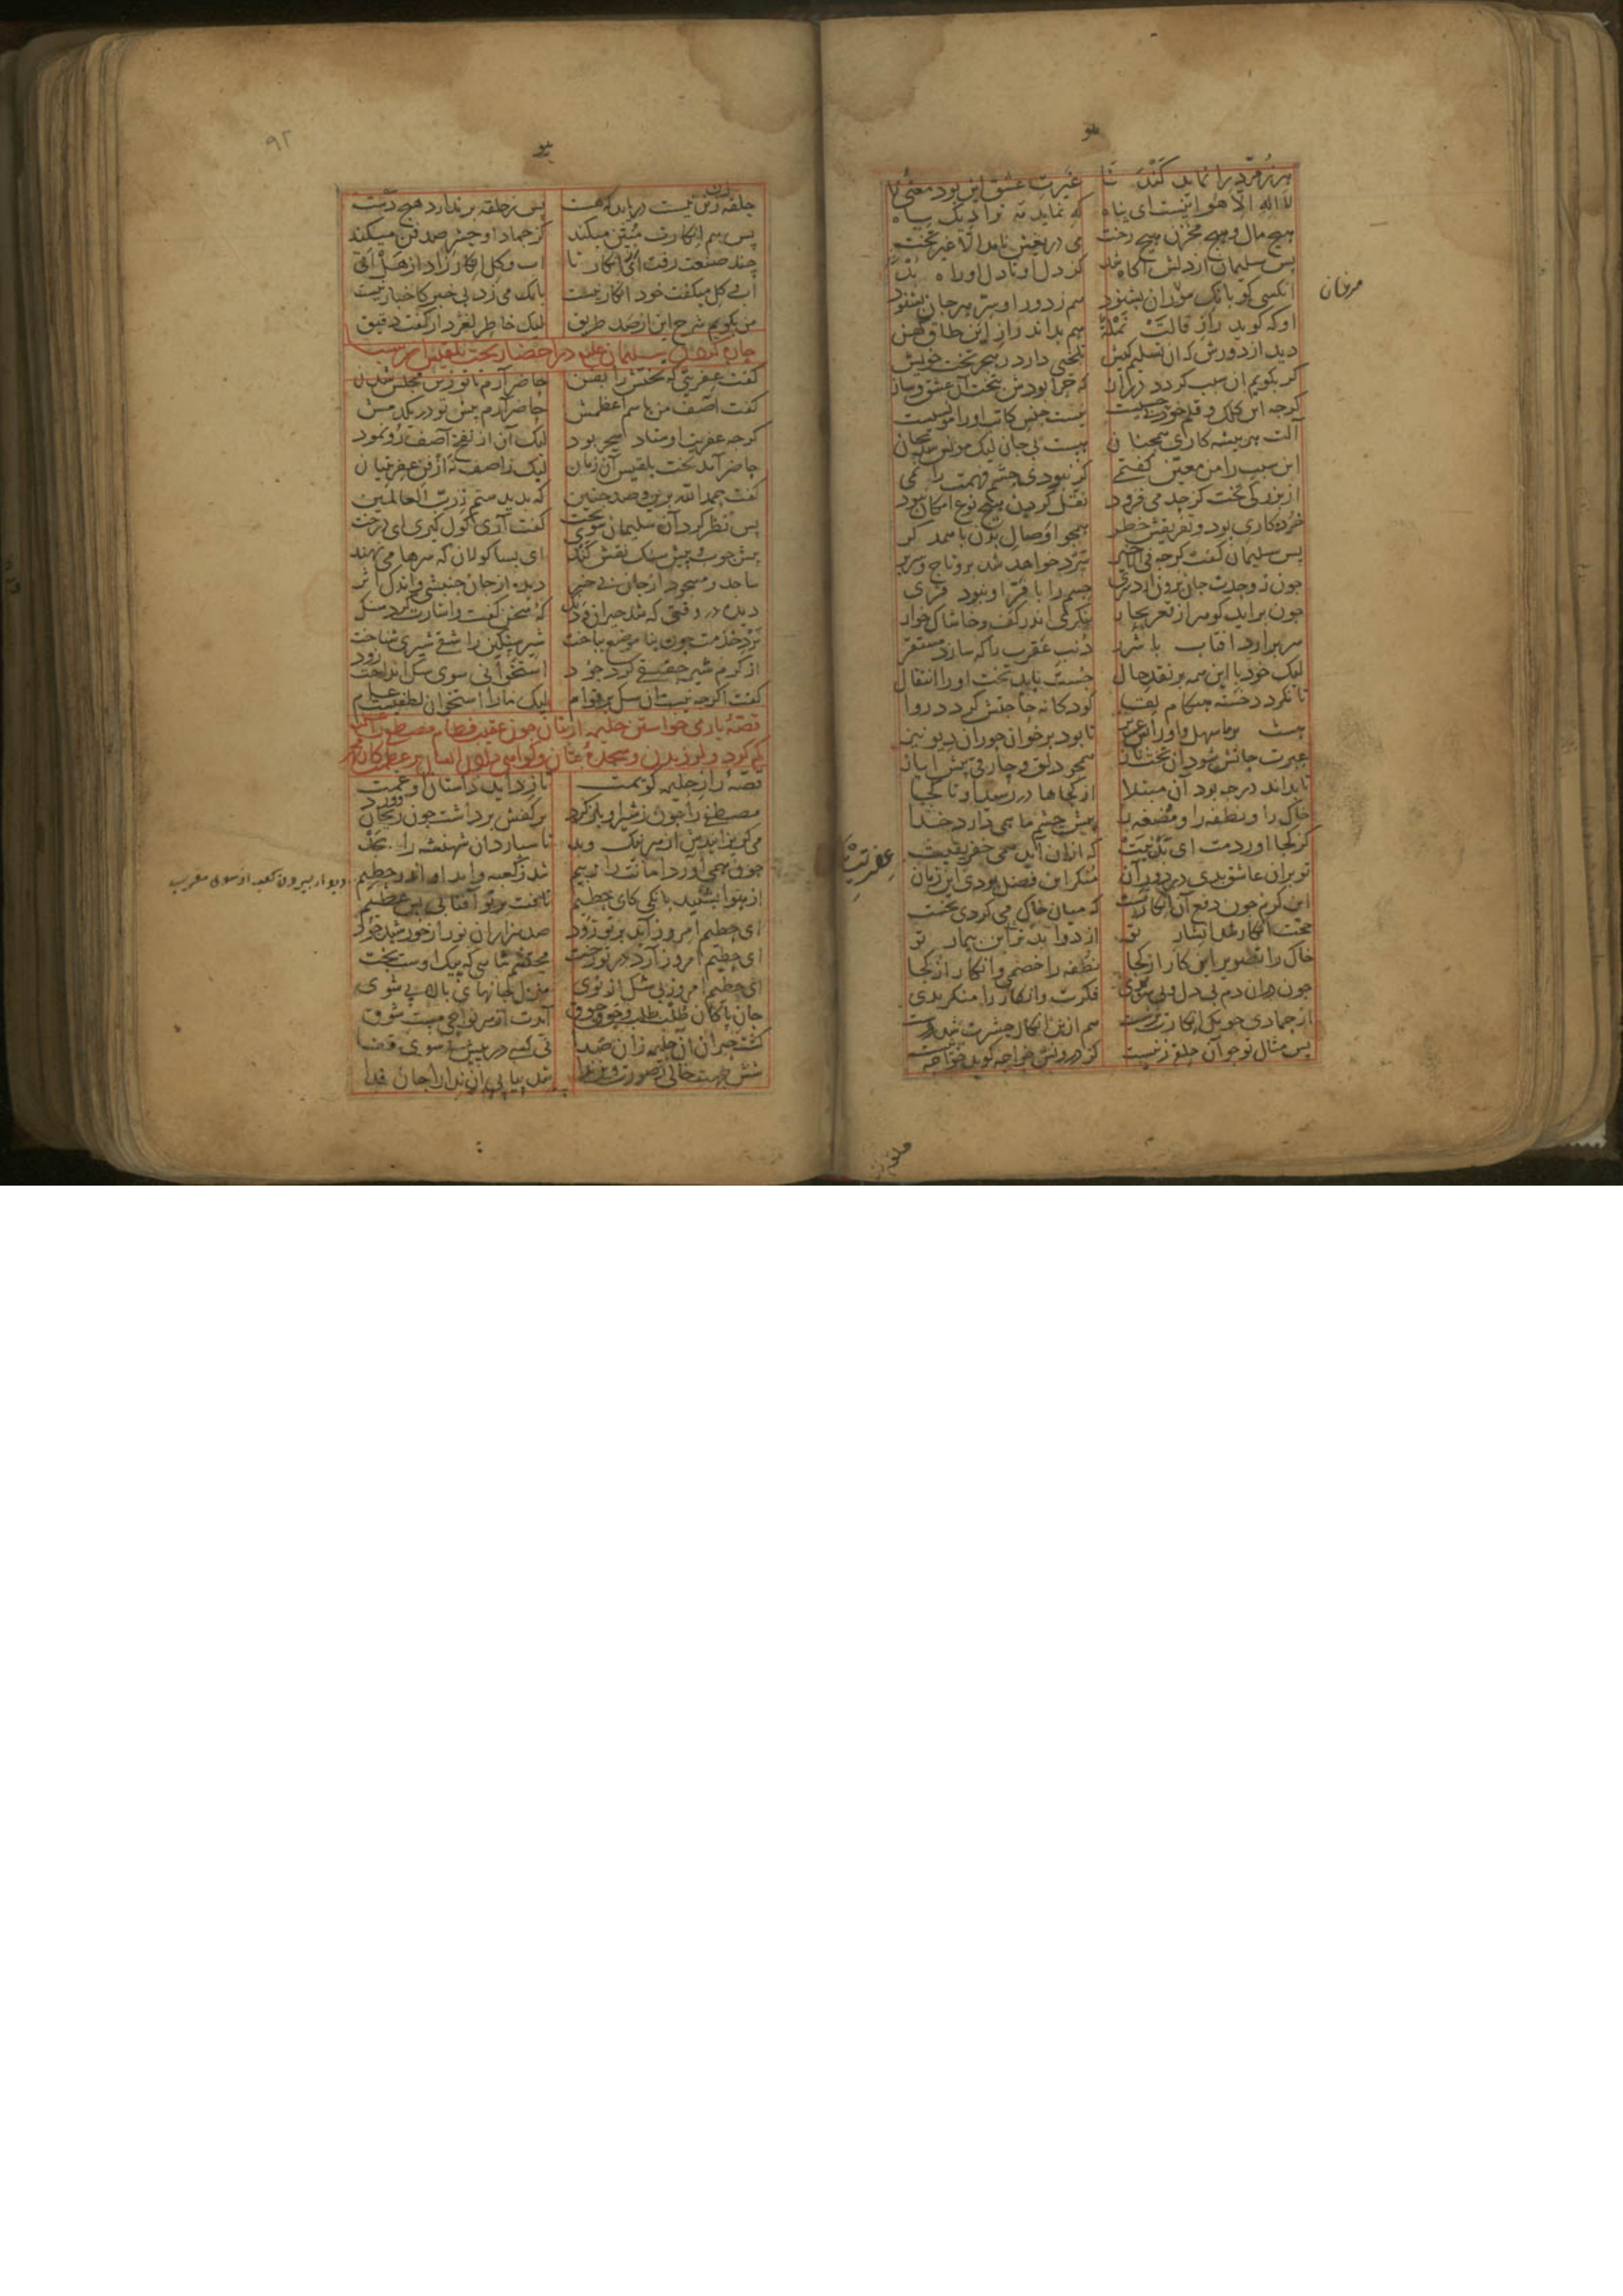 هر زمرد را نماید کندنا غیرت عشق این بود معنی لا
لا اله الا هو اینست ای پناه که نماید مه ترا دیک سیاه
هیچ مال و هیچ مخزن هیچ رخت می دریغش نامد الا غیر تخت
پس سلیمان از دلش آکاه شد کز دل او تا دل او راه بد
آنکسی کو بانک موران بشنود هم ز دور او سر هر جان بشنود
اوکه کوید راز قالت نملة هم بداند راز این طاق کهن
دید از دورش که آن تسلیم کیش تلخش دارد ز هجر تخت خویش
کر بکویم آن سبب کردد دراز که چرا بودش بتخت آن عشق و ساز
کرچه این کلک و قلم خود بی حسیست نیست جنس کاتب او را مونسیست
آلت هر پیشه کاری همچنان هست بی جان لیک مونس شد بجان
این سبب را من معین کفتمی کر نبودی چشم فهمت را نمی
از بزرکی تخت کز حد می فزود نقل کردن هیچ نوع امکان نبود
خرده کاری بود و تفریقش خطر همچو اوصال بدن با همدکر
پس سلیمان کفت کرچه فی الاخیر سرد خواهد شد برو تاج و سریر
چون ز وحدت جان برون آرد سری جسم را با فر او نبود فری
چون براید کوهر از قعر بحار ننکری اندر کف و خاشاک خوار
سر برارد آفتاب با شرر دنب عقرب را که سازد مستقر
لیک خود با این همه بر نقد حال جست باید تخت او را انتقال
تا نکردد خسته هنکام لقا کودکانه حاجتش کردد روا
هست بر ما سهل و او را بس عزیز تا بود بر خوان حوران دیو نیز
عبرت جانش شود آن تخت ناز همچو دلق و چارقی پیش ایاز
تا بداند در چه بود آن مبتلا از کجاها در رسید او تا کجا
خاک را و نطفه را و مضغه را پیش چشم ما همی دارد خدا
کز کجا آوردمت ای بدنیت که ازان آید همی خفریقیت
تو بران عاشق بدی در دور آن منکر این فضل بودی آن زمان
این کرم چون دفع آن انکار تست که میان خاک می کردی نخست
حجت انکار شد انشار تو از دوا بدتر شد این بیمار تو
خاک را تصویر این کار از کجا نطفه را خصمی و انکار از کجا
چون دران دم بی دل و بی سر بدی فکرت و انکار را منکر بدی
از جمادی چونکه انکارت برست هم ازین انکار حشرت شد درست
پس مثال تو چو آن حلقه زنیست کز درونش خواجه کوید خواجه نیست
مرغان
عفریت
حلقه زن زین نیست دریابد که هست پس ز حلقه بر ندارد هیچ دست
پس هم انکارت مبین میکند کز جماد او حشر صد فن میکند
چند صنعت رفت ای انکار تا آب و کل انکار زاد از هل اتی
آب و کل میکفت خود انکار نیست بانک می زد بی خبر کاخبار نیست
من بکویم شرح این از صد طریق لیک خاطر لغزد از کفت دقیق
چاره کردن سلیمان علیه در احضار تخت بلقیس از سبا
کفت عفریتی که تختش را بفن حاضر آرم تا تو زین مجلس شدن
کفت آصف من باسم اعظمش حاضر آرم پیش تو در یکدمش
کرچه عفریت اوستاد سحر بود لیک آن از نفخ آصف رو نمود
حاضر آمد تخت بلقیس آن زمان لیک ز آصف نه از فن عفریتیان
کفت حمد الله برین و صد چنین که بدیدستم ز رب العالمین
پس نظر کرد آن سلیمان سوی تخت کفت آری کول کیری ای درخت
پیش چوب و پیش سنک نقش کند ای بسا کولان که سرها می نهند
ساجد و مسجود از جان بی خبر دیده از جان جنبشی و اندک اثر
دیده در وقتی که شد حیران و دنک که سخن کفت و اشارت کرد سنک
نرد خدمت چون بنا موضع بباخت شیر سنکین را شقی شیری شناخت
از کرم شیر حقیقی کرد جود استخوانی سوی سک انداخت زود
کفت اکرچه نیست آن سک بر قوام لیک ما را استخوان لطفیست عام
قصهٔ یاری خواستن حلیمه از بتان چون عقیب فطام مصطفی را علیه
کم کرد و لرزیدن و سجدهٔ بتان و کواهی دادن ایشان بر عظمت کار محمد
قصهٔ راز حلیمه کویمت تا زداید داستان او غمت
مصطفی را چون ز شیر او باز کرد بر کفش برداشت چون ریحان و ورد
می کریزانیدش از هر نیک و بد تا سپارد آن شهنشه را بجد
چون همی آورد امانت را ز بیم شد ز کعبه و آمد او اندر حطیم
از هوا بشنید بانکی کای حطیم تافت بر تو آفتابی بس عظیم
ای حطیم امروز آید بر تو زود صد هزاران نور از خورشید جود
ای حطیم امروز آرد در تو رخت محتشم شاهی که پیک اوست بخت
ای حطیم امروز بی شک از نوی منزل جانهای بالایی شوی
جان پاکان طلب طلب و جوق جوق آیدت از هر نواحی مست شوق
کشت حیران آن حلیمه زان صدا نی کسی در پیش نه سوی قفا
شش جهت خالی ز صورت وین ندا شد پیاپی آن ندا را جان فدا
دیوار بیرون کعبه از سوی مغرب
۹۲